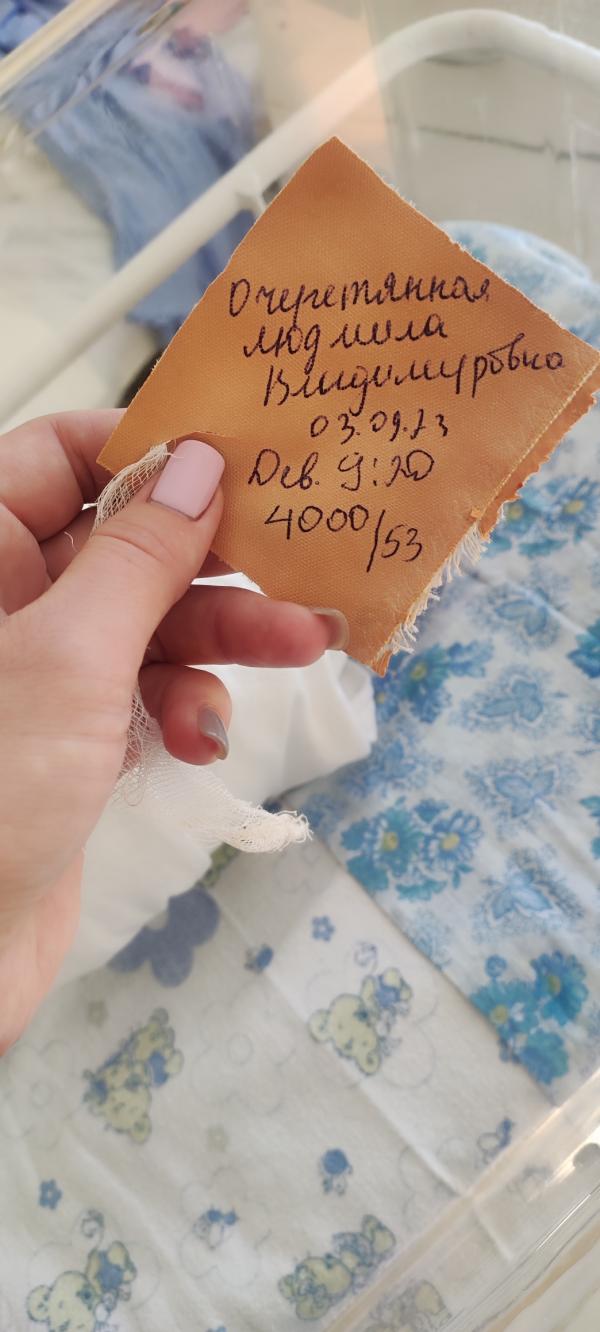 Очеретянная
Людмила
Владимировна
03.09.23
Дев. 9:20
4000/53